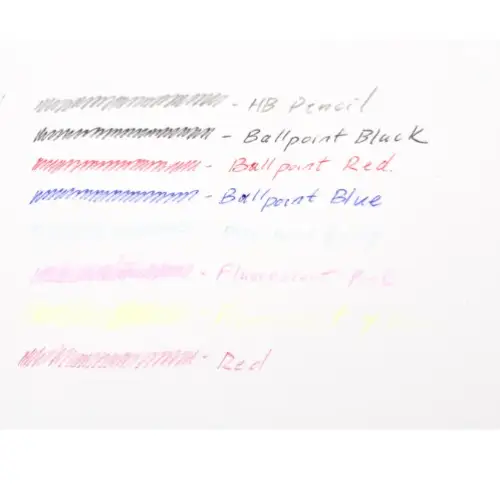 - HB Pencil
- Ballpoint Black
- Ballpoint Red.
- Ballpoint Blue
- Fluorescent Pink
- Red